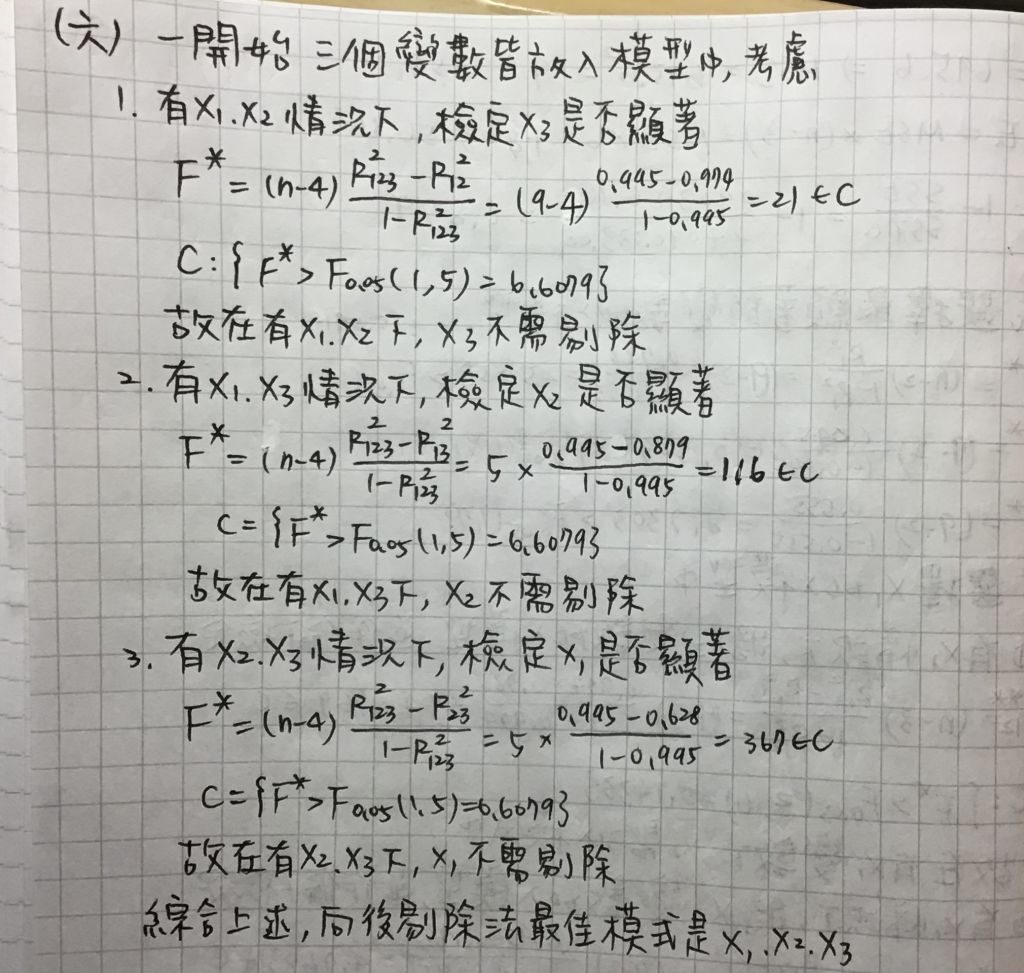 (六) 一開始三個變數皆放入模型中,考慮
1. 有X1.X2情況下,檢定X3是否顯著
F* = (n-4) (R²123 - R²12)/(1-R²123) = (9-4) (0.995-0.974)/(1-0.995) = 21 ∈ C
C:{F* > F0.05(1,5) = 6.6079}
故在有X1.X2下, X3不需剔除
2. 有X1.X3情況下,檢定X2是否顯著
F* = (n-4) (R²123 - R²13)/(1-R²123) = 5 × (0.995-0.879)/(1-0.995) = 116 ∈ C
C = {F* > F0.05(1,5) = 6.6079}
故在有X1.X3下, X2不需剔除
3. 有X2.X3情況下,檢定X1是否顯著
F* = (n-4) (R²123 - R²23)/(1-R²123) = 5 × (0.995-0.628)/(1-0.995) = 367 ∈ C
C = {F* > F0.05(1.5) = 6.6079}
故在有X2.X3下, X1不需剔除
綜合上述,向後剔除法最佳模式是X1.X2.X3